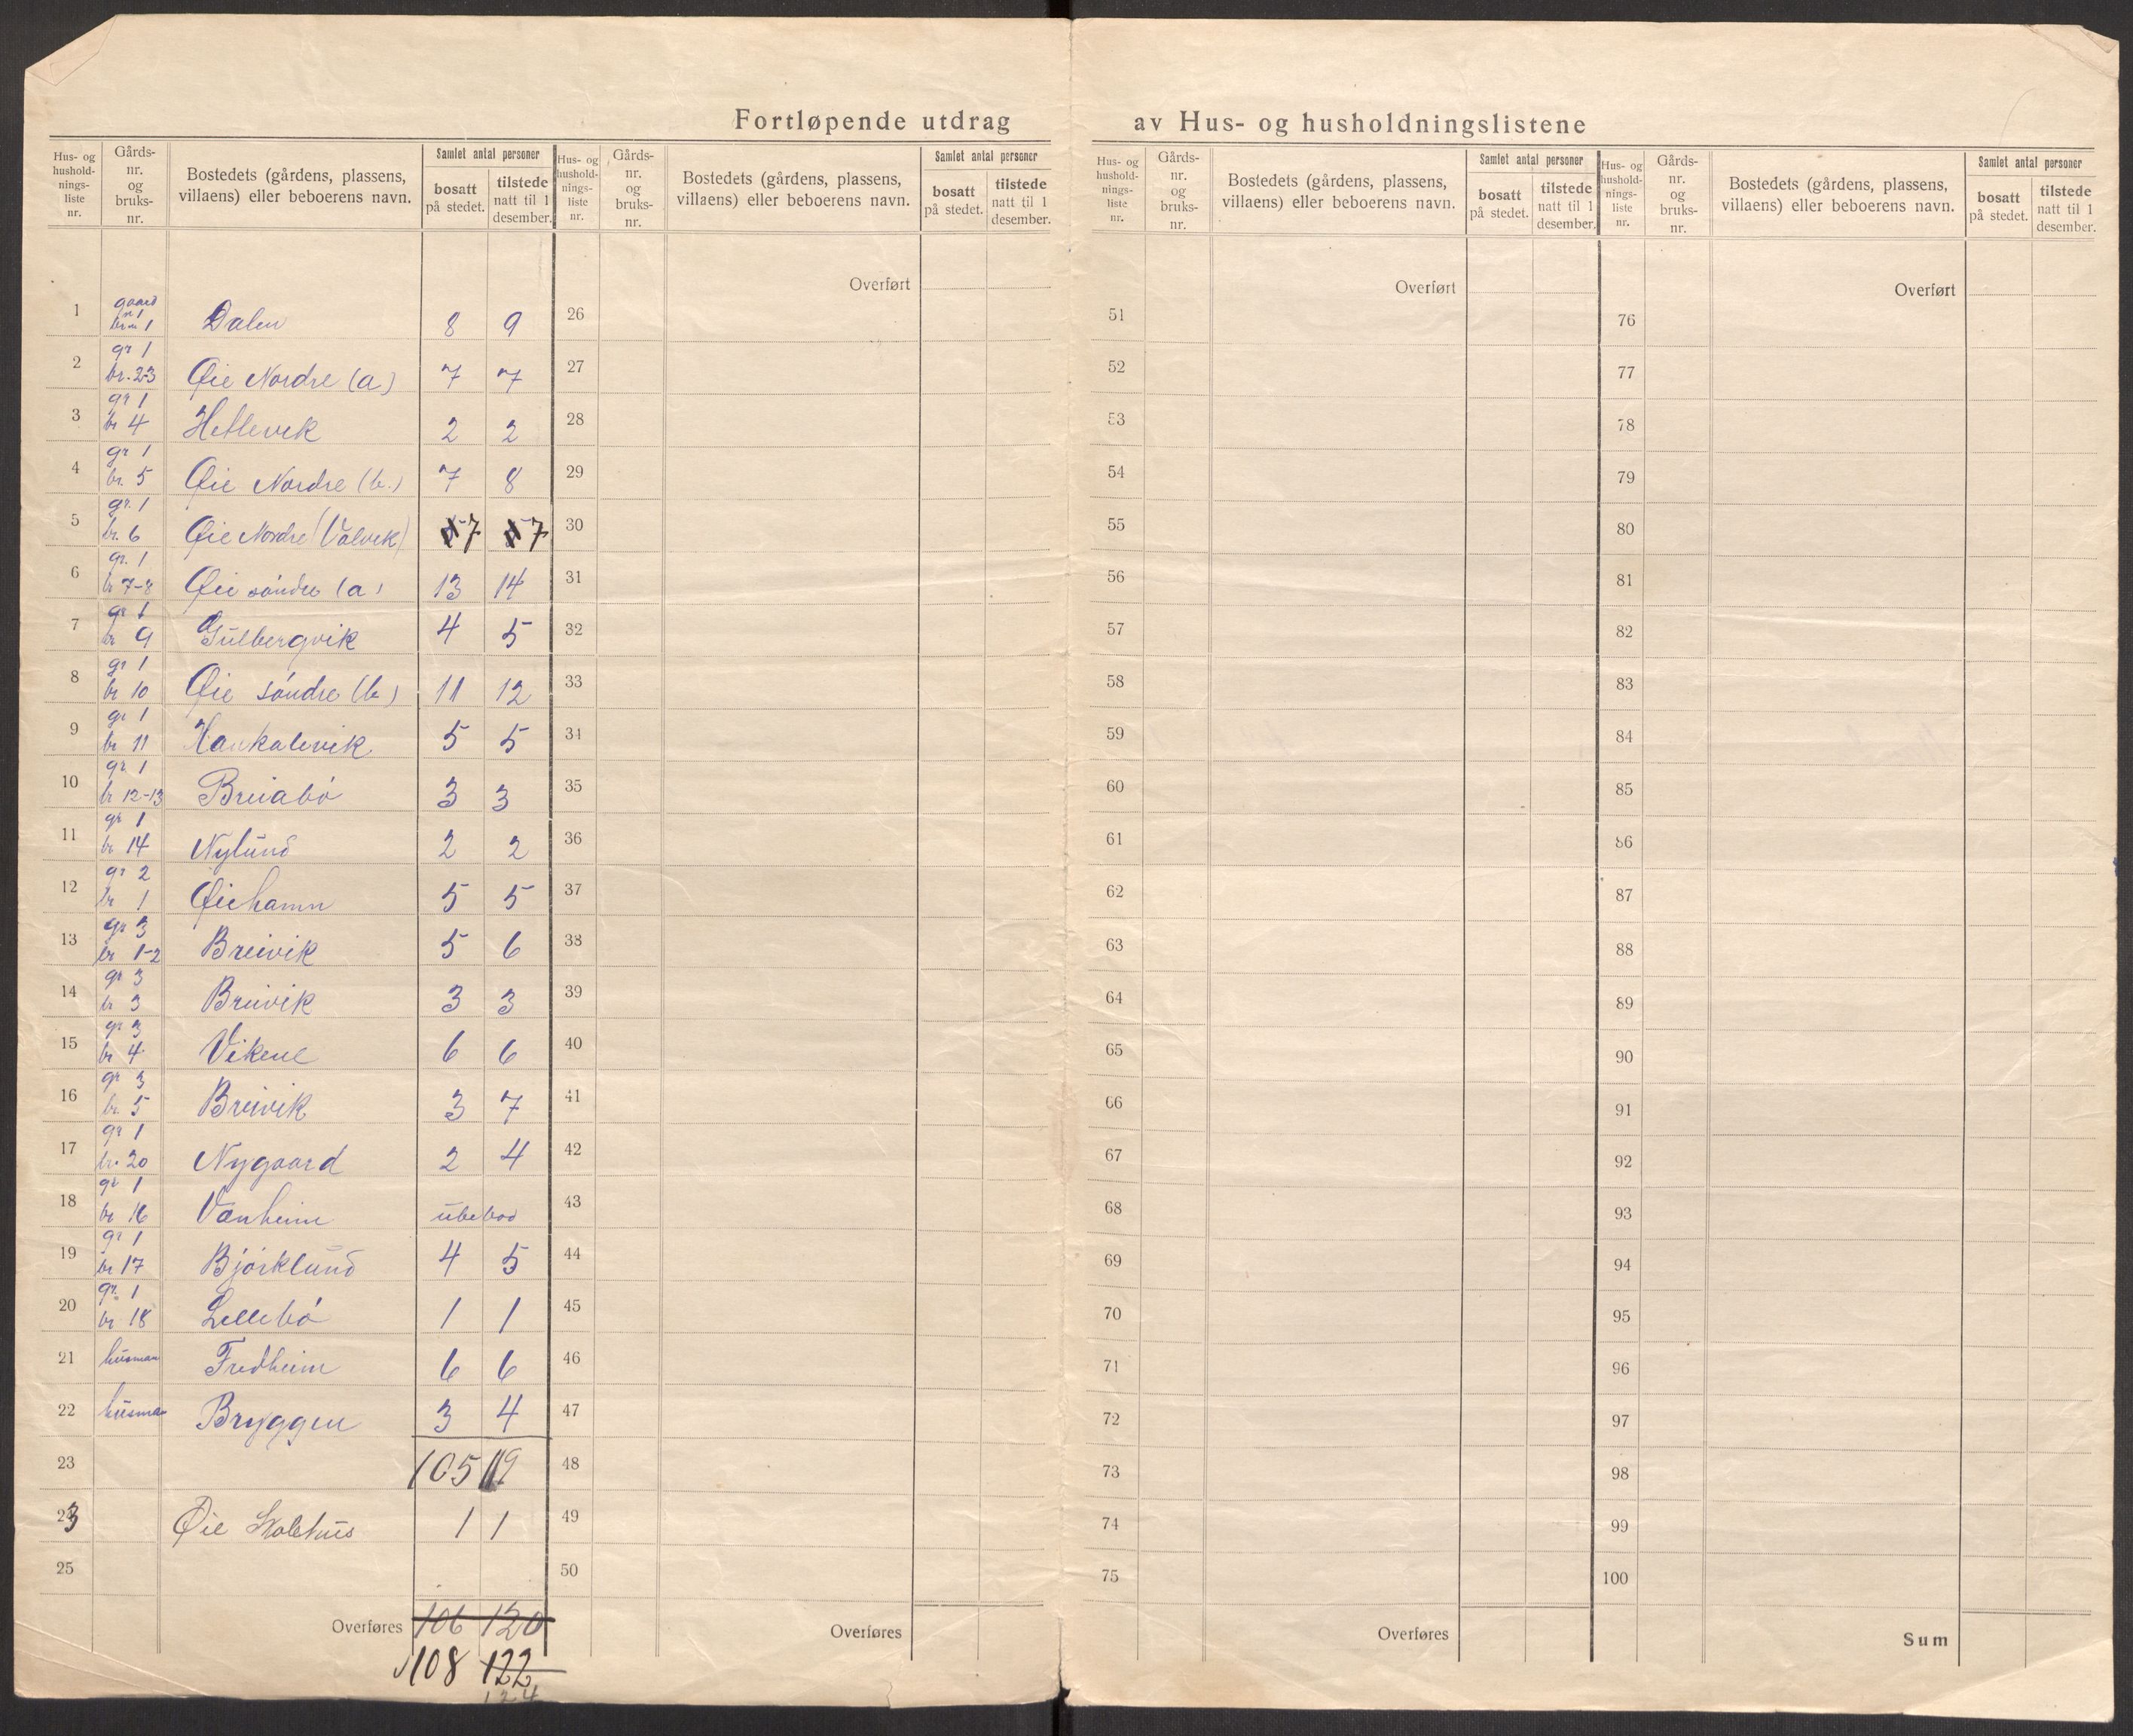 Fortløpende utdrag av Hus- og husholdningslistene
Hus- og hushold- nings- liste nr. | Gårds- nr. og bruks- nr. | Bostedets (gårdens, plassens, villaens) eller beboerens navn. | Samlet antal personer | bosatt på stedet. | tilstede natt til 1 desember.
Hus- og hushold- nings- liste nr. | Gårds- nr. og bruks- nr. | Bostedets (gårdens, plassens, villaens) eller beboerens navn. | Samlet antal personer | bosatt på stedet. | tilstede natt til 1 desember.
Hus- og hushold- nings- liste nr. | Gårds- nr. og bruks- nr. | Bostedets (gårdens, plassens, villaens) eller beboerens navn. | Samlet antal personer | bosatt på stedet. | tilstede natt til 1 desember.
Hus- og hushold- nings- liste nr. | Gårds- nr. og bruks- nr. | Bostedets (gårdens, plassens, villaens) eller beboerens navn. | Samlet antal personer | bosatt på stedet. | tilstede natt til 1 desember.
Overført Overført Overført
1 gaard nr 1 br nr 1 Dalen 8 9 26 51 76
2 gr 1 br. 2-3 Øie Nordre (a) 7 7 27 52 77
3 gr 1 br 4 Hetlevik 2 2 28 53 78
4 gr 1 br. 5 Øie Nordre (b.) 7 8 29 54 79
5 gr. 1 br. 6 Øie Nordre (Valvik) 7 7 30 55 80
6 gr. 1 br 7-8 Øie søndre (a) 13 14 31 56 81
7 gr 1 br 9 Gulbergvik 4 5 32 57 82
8 gr 1 br 10 Øie søndre (b) 11 12 33 58 83
9 gr 1 br 11 Haukalivik 5 5 34 59 84
10 gr. 1 br 12-13 Breiabø 3 3 35 60 85
11 gr 1 br 14 Nylund 2 2 36 61 86
12 gr 2 br 1 Øiehamn 5 5 37 62 87
13 gr 3 br 1-2 Breivik 5 6 38 63 88
14 gr 3 br 3 Breivik 3 3 39 64 89
15 gr 3 br 4 Vikene 6 6 40 65 90
16 gr 3 br. 5 Breivik 3 7 41 66 91
17 gr 1 br. 20 Nygaard 2 4 42 67 92
18 gr 1 br 16 Vonheim ubebod 43 68 93
19 gr 1 br 17 Bjørklund 4 5 44 69 94
20 gr. 1 br 18 Lillebø 1 1 45 70 95
21 husman Fredheim 6 6 46 71 96
22 husman Bryggen 3 4 47 72 97
23 105 119 48 73 98
23 Øie Skolehus 1 1 49 74 99
25 50 75 100
Overføres 106 120 Overføres Overføres Sum
108 122
124